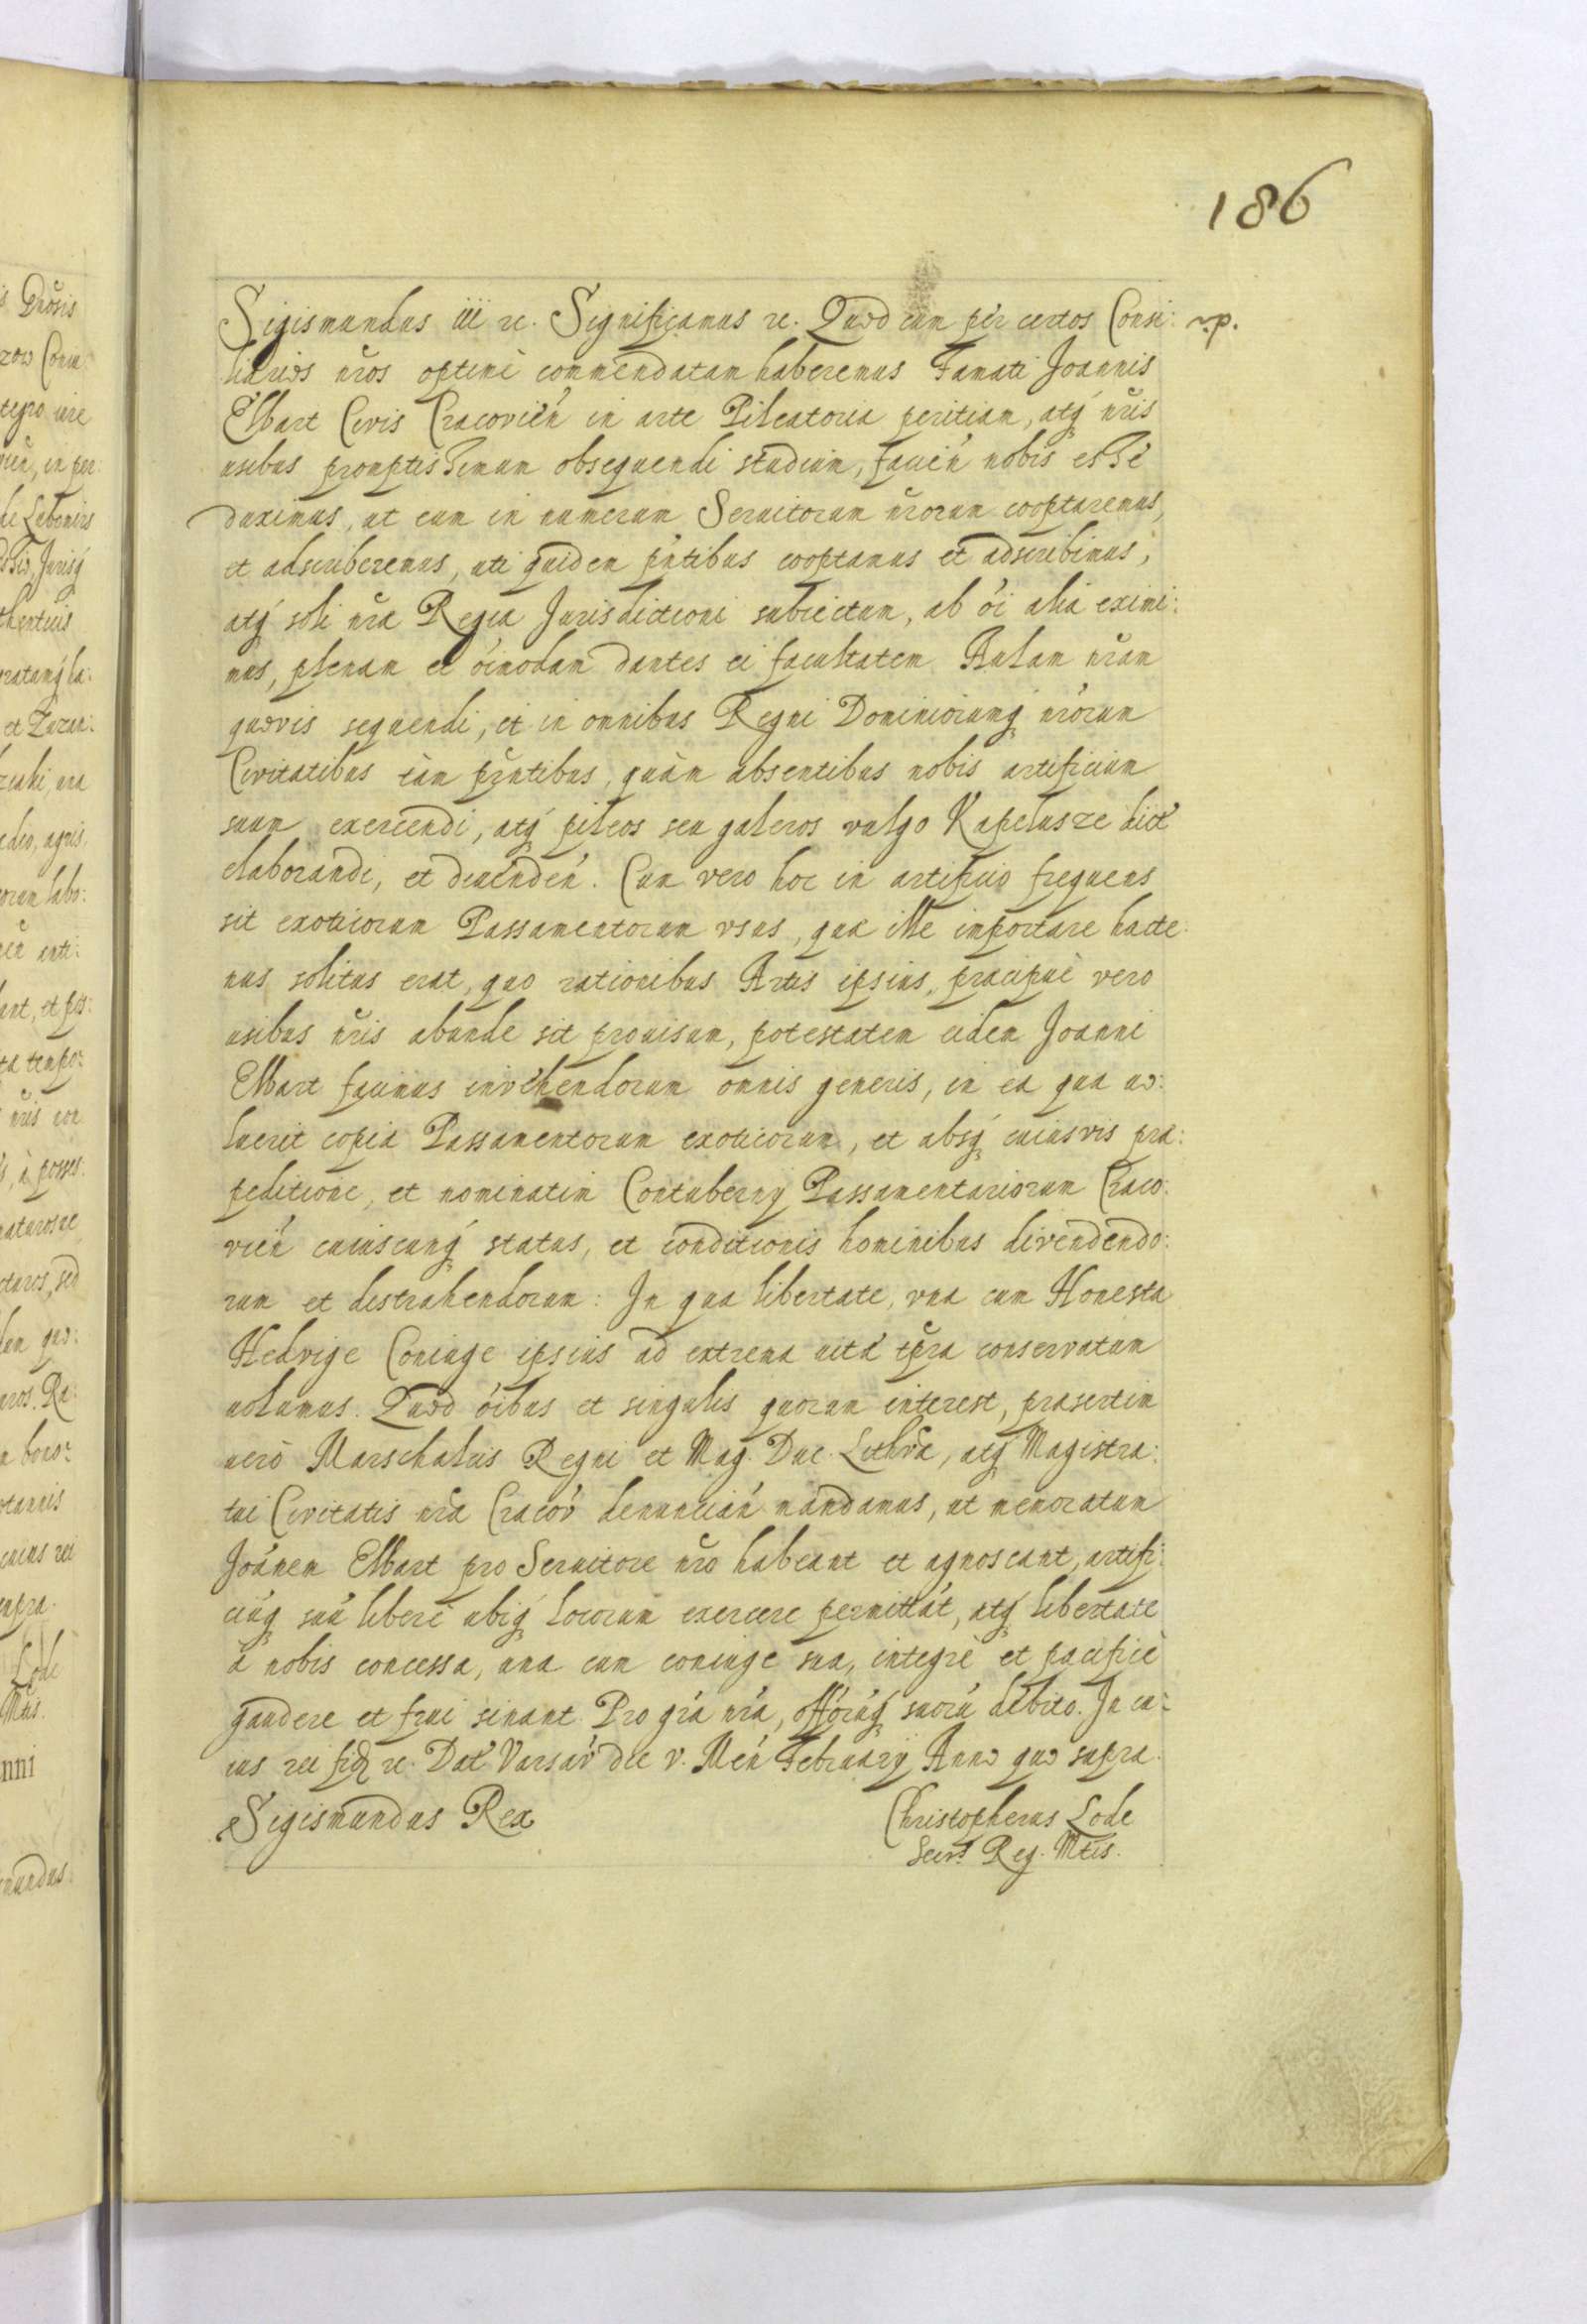 186
Sigismundus iii rc. Significamus rc. Quod cum per certos Consi: r.p.
liarios nr̃os optimè commendatam haberemus Famati Joannis
Elbart Civis Cracovień in arte Pileatoria peritiam, atq́ nr̃is
usibus promptissimum obsequendi studium, facień nobis esse
duximus, ut eum in numerum Seruitorum nr̃orum cooptaremus,
et adscriberemus, uti quidem pńtibus cooptamus et adscribimus,
atq́ soli nr̃a Regia Jurisdictioni subiectum, ab oi alia eximi:
mus, plenam et oi̇modam dantes ei facultatem Aulam nr̃am
quovis sequendi, et in omnibus Regni Dominiorumq́ nr̃orum
Civitatibus tàm pr̃ntibus, quàm absentibus nobis artificium
suum exercendi, atq́ pileos seu galeros vulgo Kapelusze dict
elaborandi, et diuenden. Cum vero hoc in artificio frequens
sit exoticorum Passamentorum vsus, qua ille importare hacte:
nus solitus erat, quo rationibus Artis ipsius, pracipuè vero
usibus nr̃is abunde sit prouisum, potestatem eidem Joanni
Elbart facimus invehendorum omnis generis, in ea qua uo:
luerit copia Passamentorum exoticorum, et absq́ cuiusvis pra:
peditione, et nominatim Contubernÿ Passamentariorum Craco:
vień cuiuscunq́ status, et conditionis hominibus divendendo:
rum et distrahendorum: In qua libertate, vna cum Honesta
Hedvige Coniuge ipsius ad extrema uita tp̃ra conservatum
uolumus. Quod oi̇bus et singulis quorum interest, prasertim
uerò Marschalcis Regni et Mag. Duc. Lithṽa, atq́ Magistra:
tui Civitatis nr̃a Cracov́ denuncian mandamus, ut memoratum
Joánem Elbart pro Seruitore nr̃o habeant et agnoscant, artifi:
ciúq́ suú liberè ubiq́ locorum exercere permittát, atq́ libertate
à nobis concessa, una cum coniuge sua, integrè et pacificè
gaudere et frui sinant. Pro gr̃a nr̃a, offórúq́ suorú debito. In cu:
ius rei fidẽ rc. Dat́ Varsav́ die v. Meń Februarÿ Anno quo supra.
Sigismundus Rex
Christopherus Lode
Secrs. Reg. Mtis.